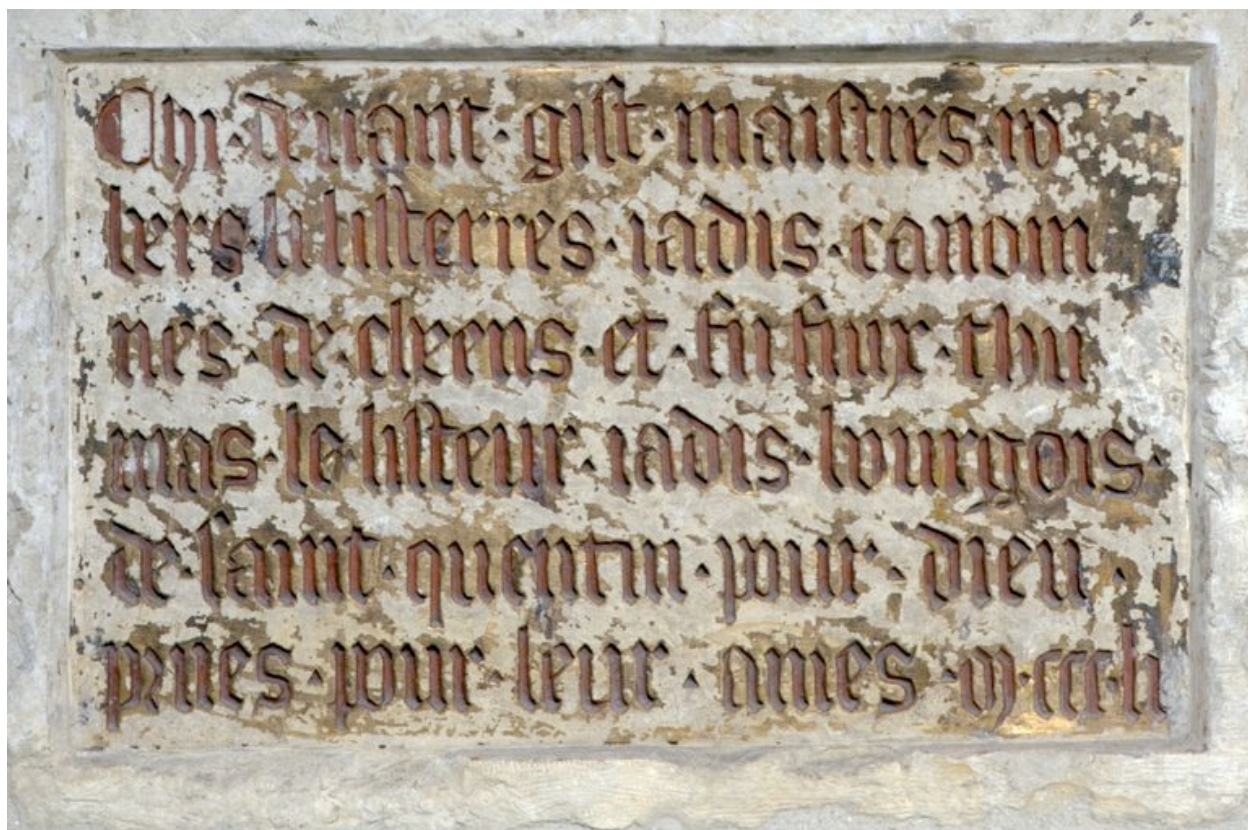 Chi·deuant·gist·maistres·ro
bers·li listerres·iadis·canoin
nes·de·cheens·et·fu fiux·thu
mas·le·listeur·iadis·bourgois·
de·saint·quentin·pour·dieu·
priies·pour·leur·ames·m·ccc·li